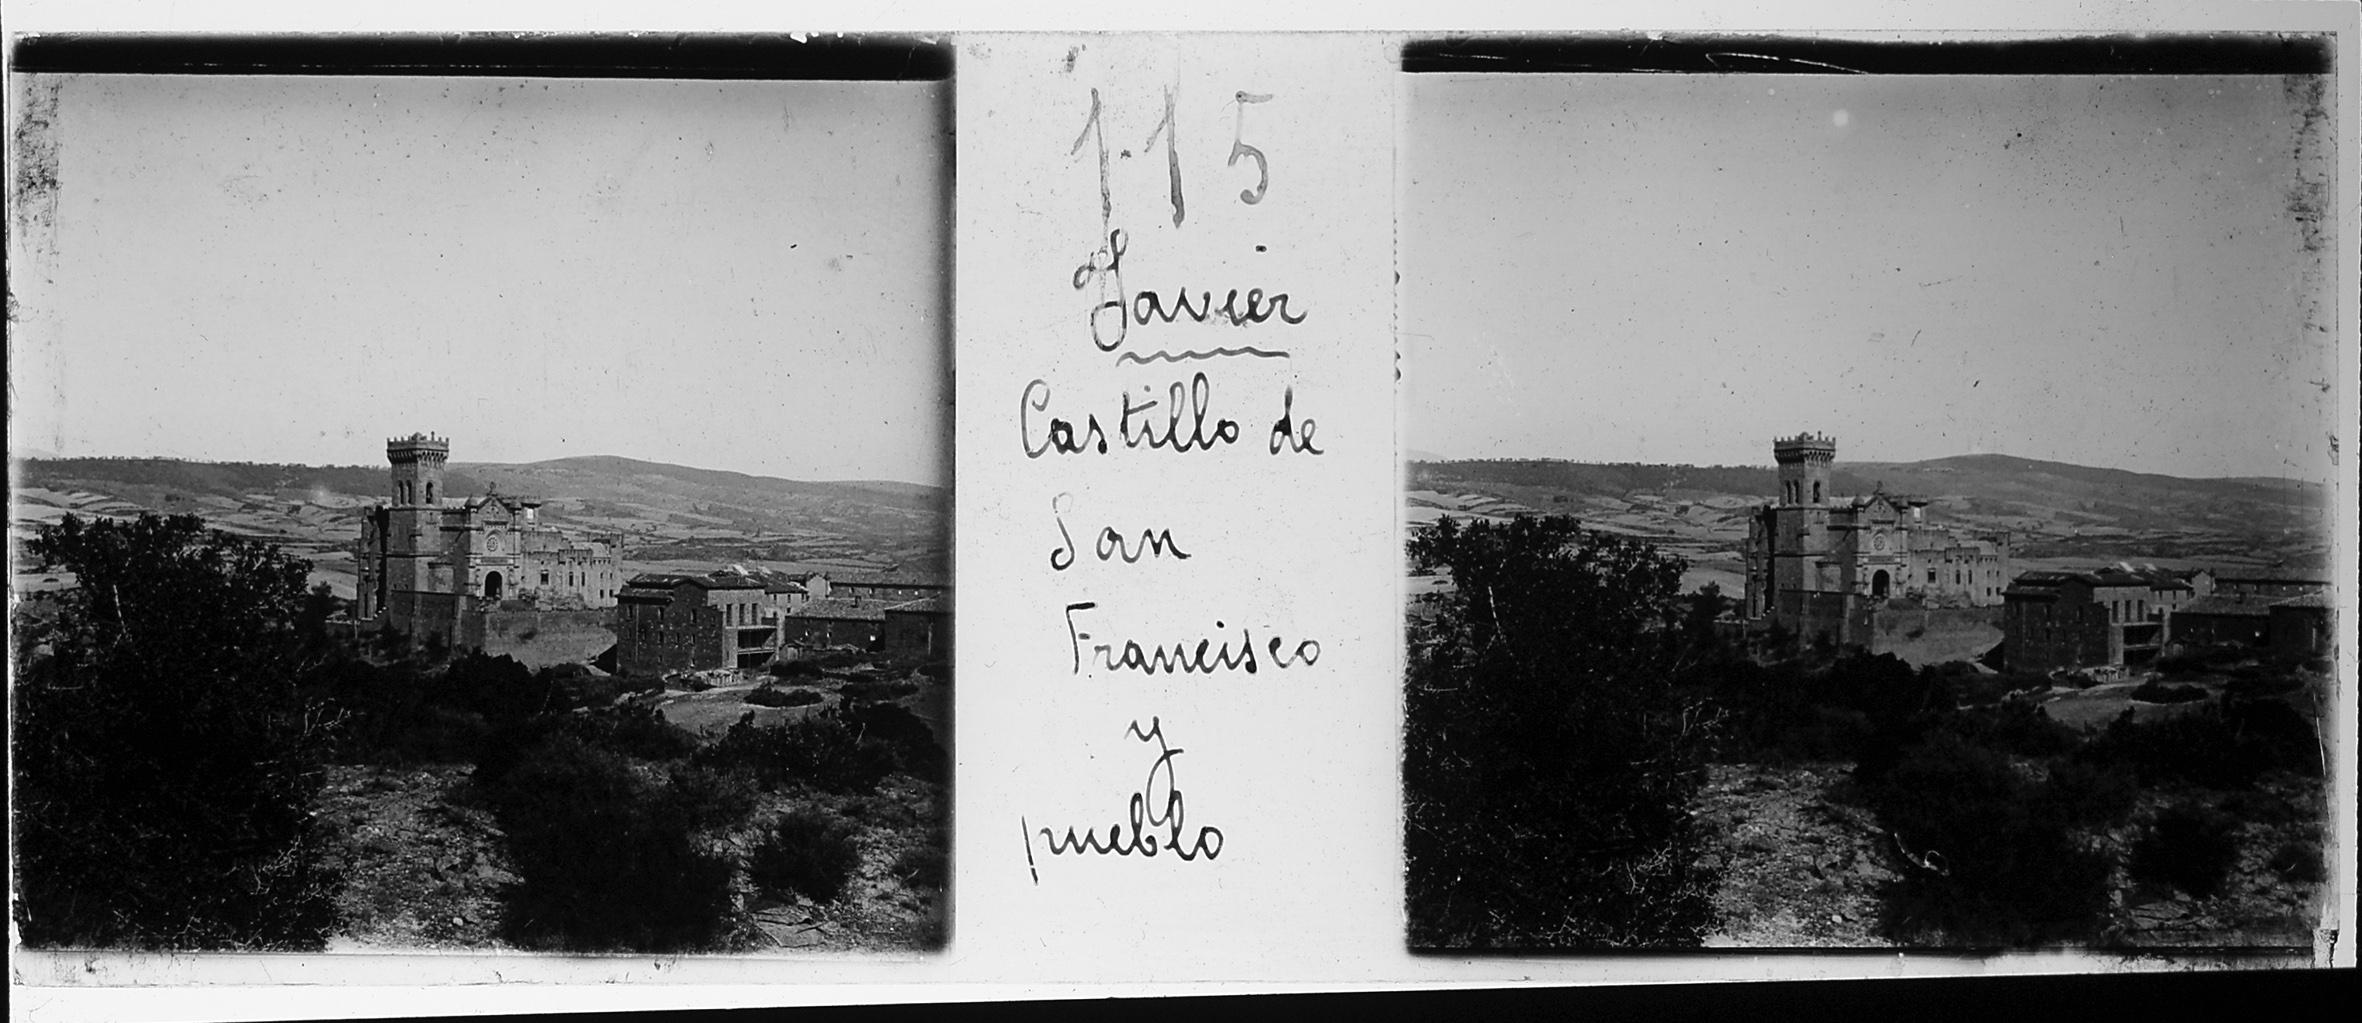 115
Javier
Castillo de
San
Francisco
y
pueblo